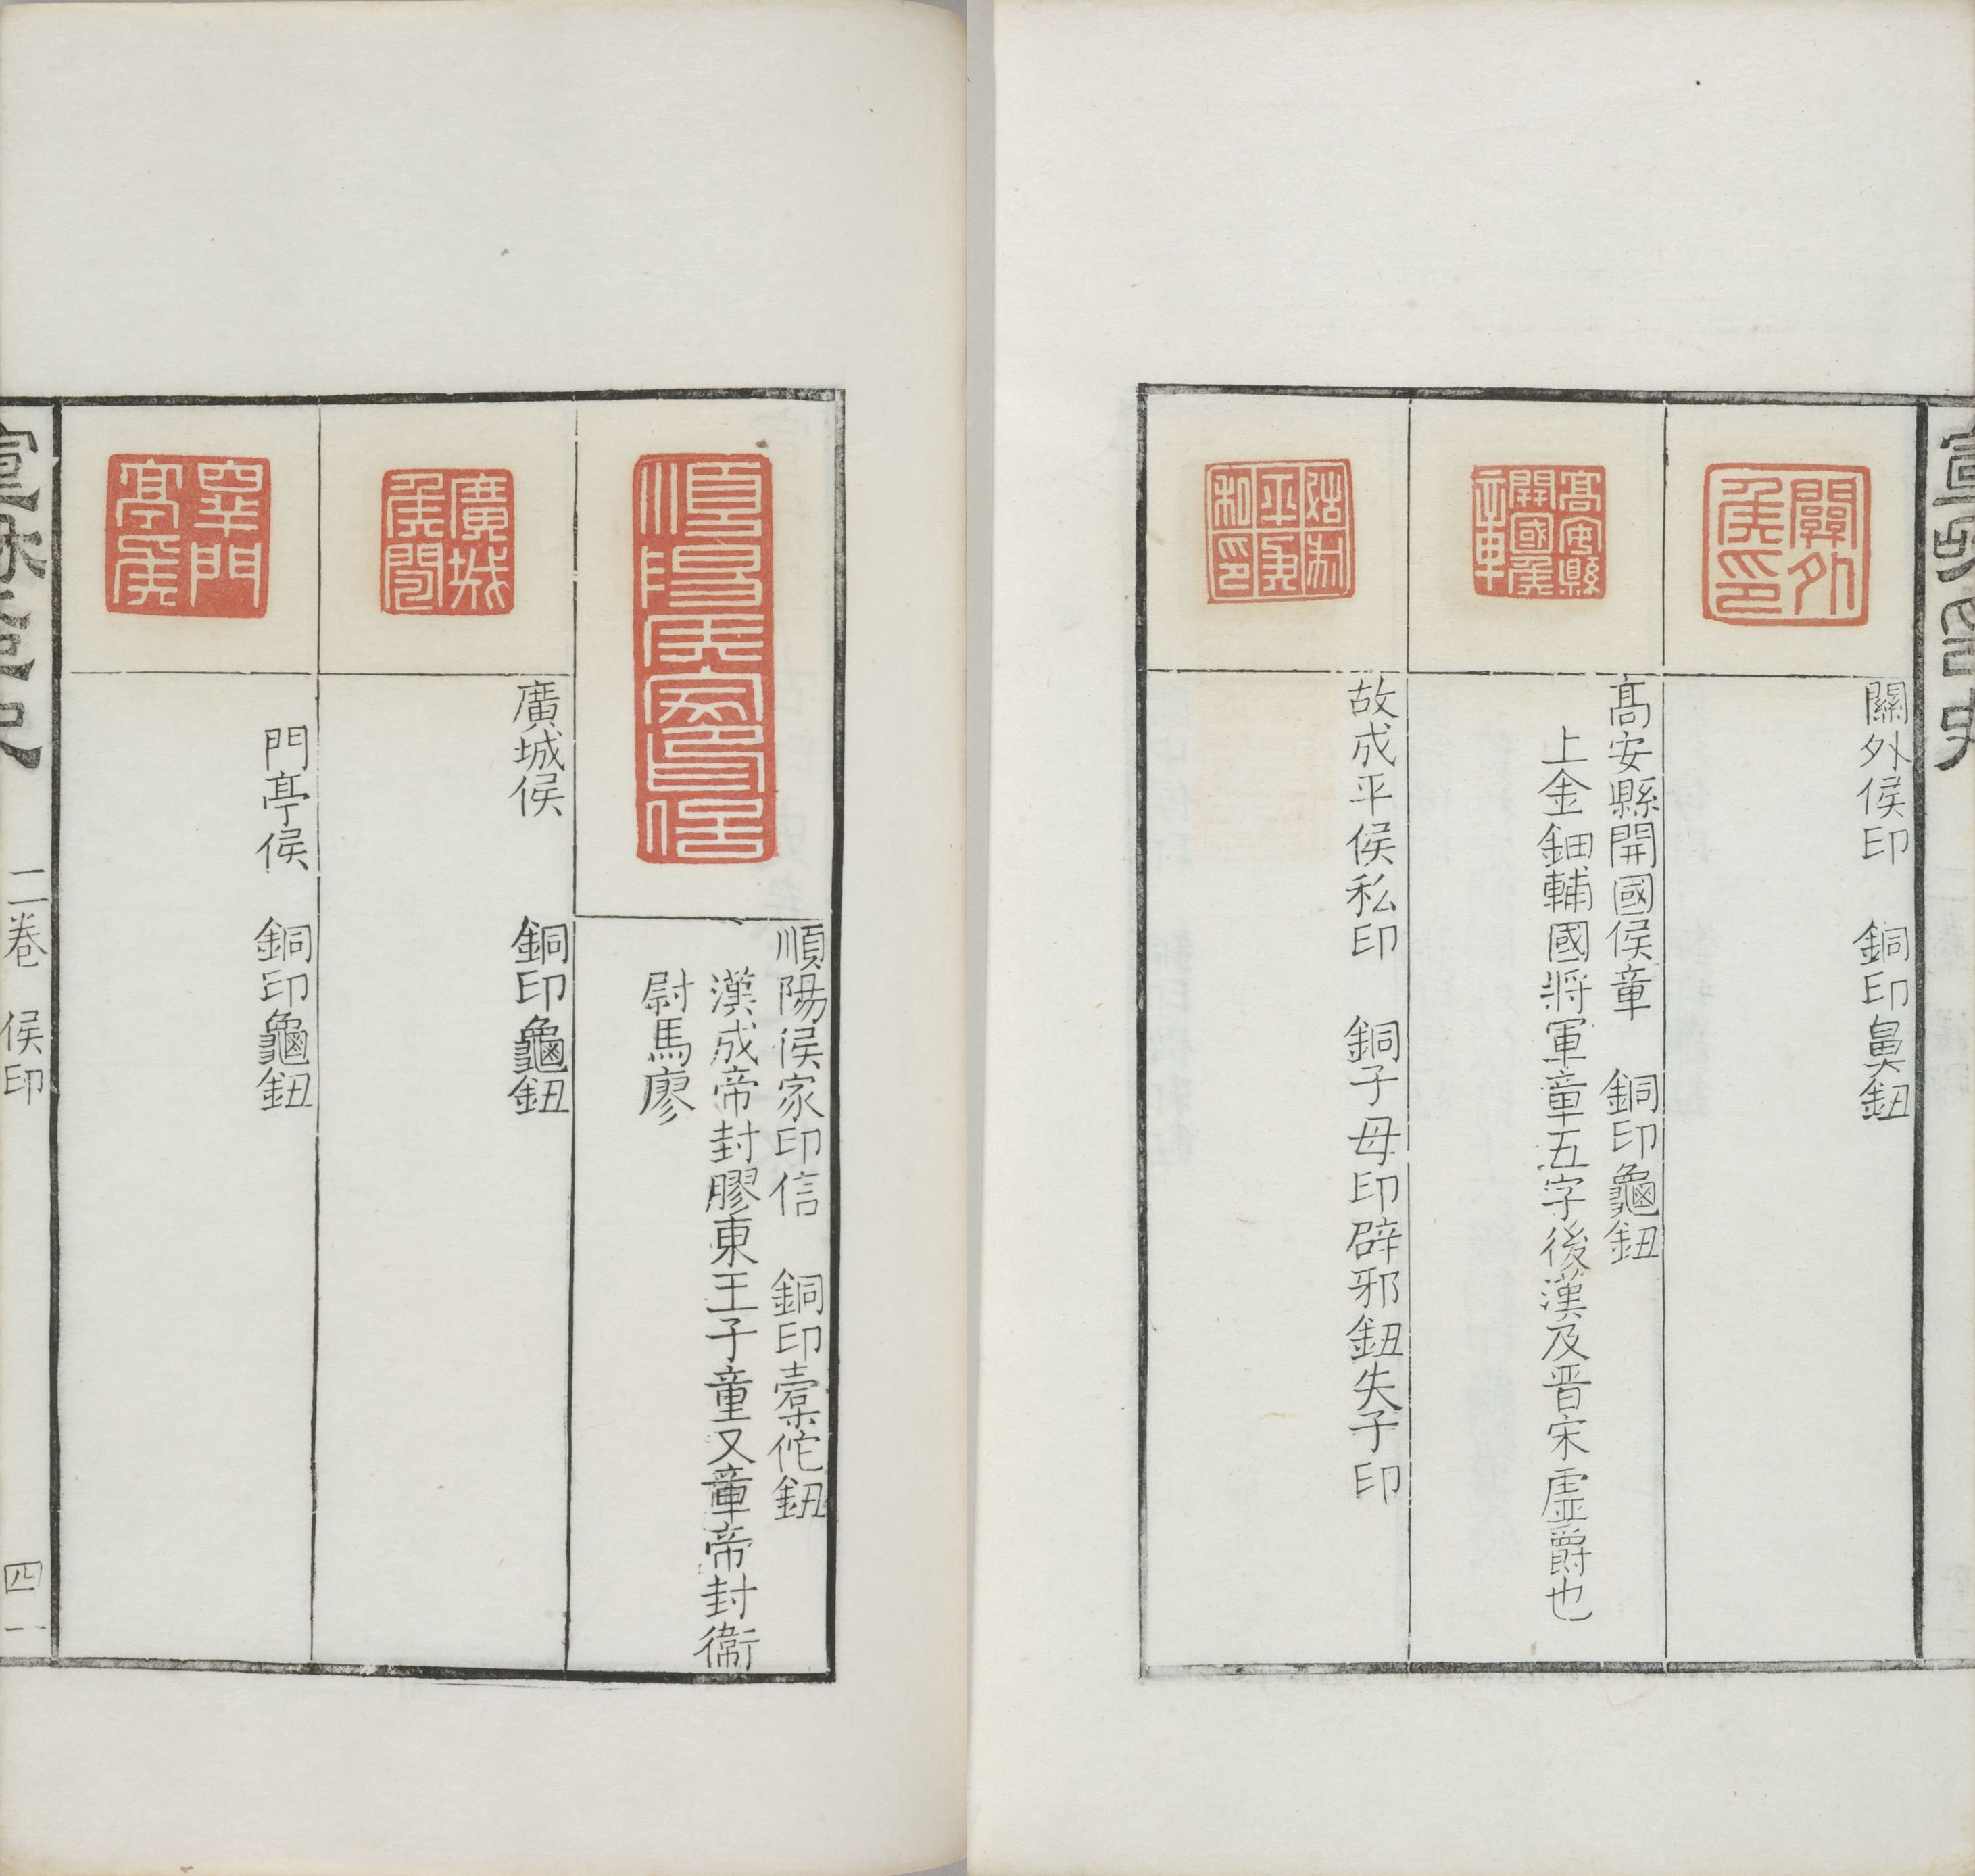 宣和印史
關外侯印 銅印鼻鈕
高安縣開國侯章 銅印龜鈕
上金鈿輔國將軍章五字後漢及晉宋虛爵也
故成平侯私印 銅子母印辟邪鈕失子印
順陽侯家印信
順陽侯家印信 銅印橐佗鈕
漢成帝封膠東王子童又章帝封衞
尉馬廖
廣城侯 銅印龜鈕
門亭侯 銅印龜鈕
宣和印史 二卷 侯印 四一